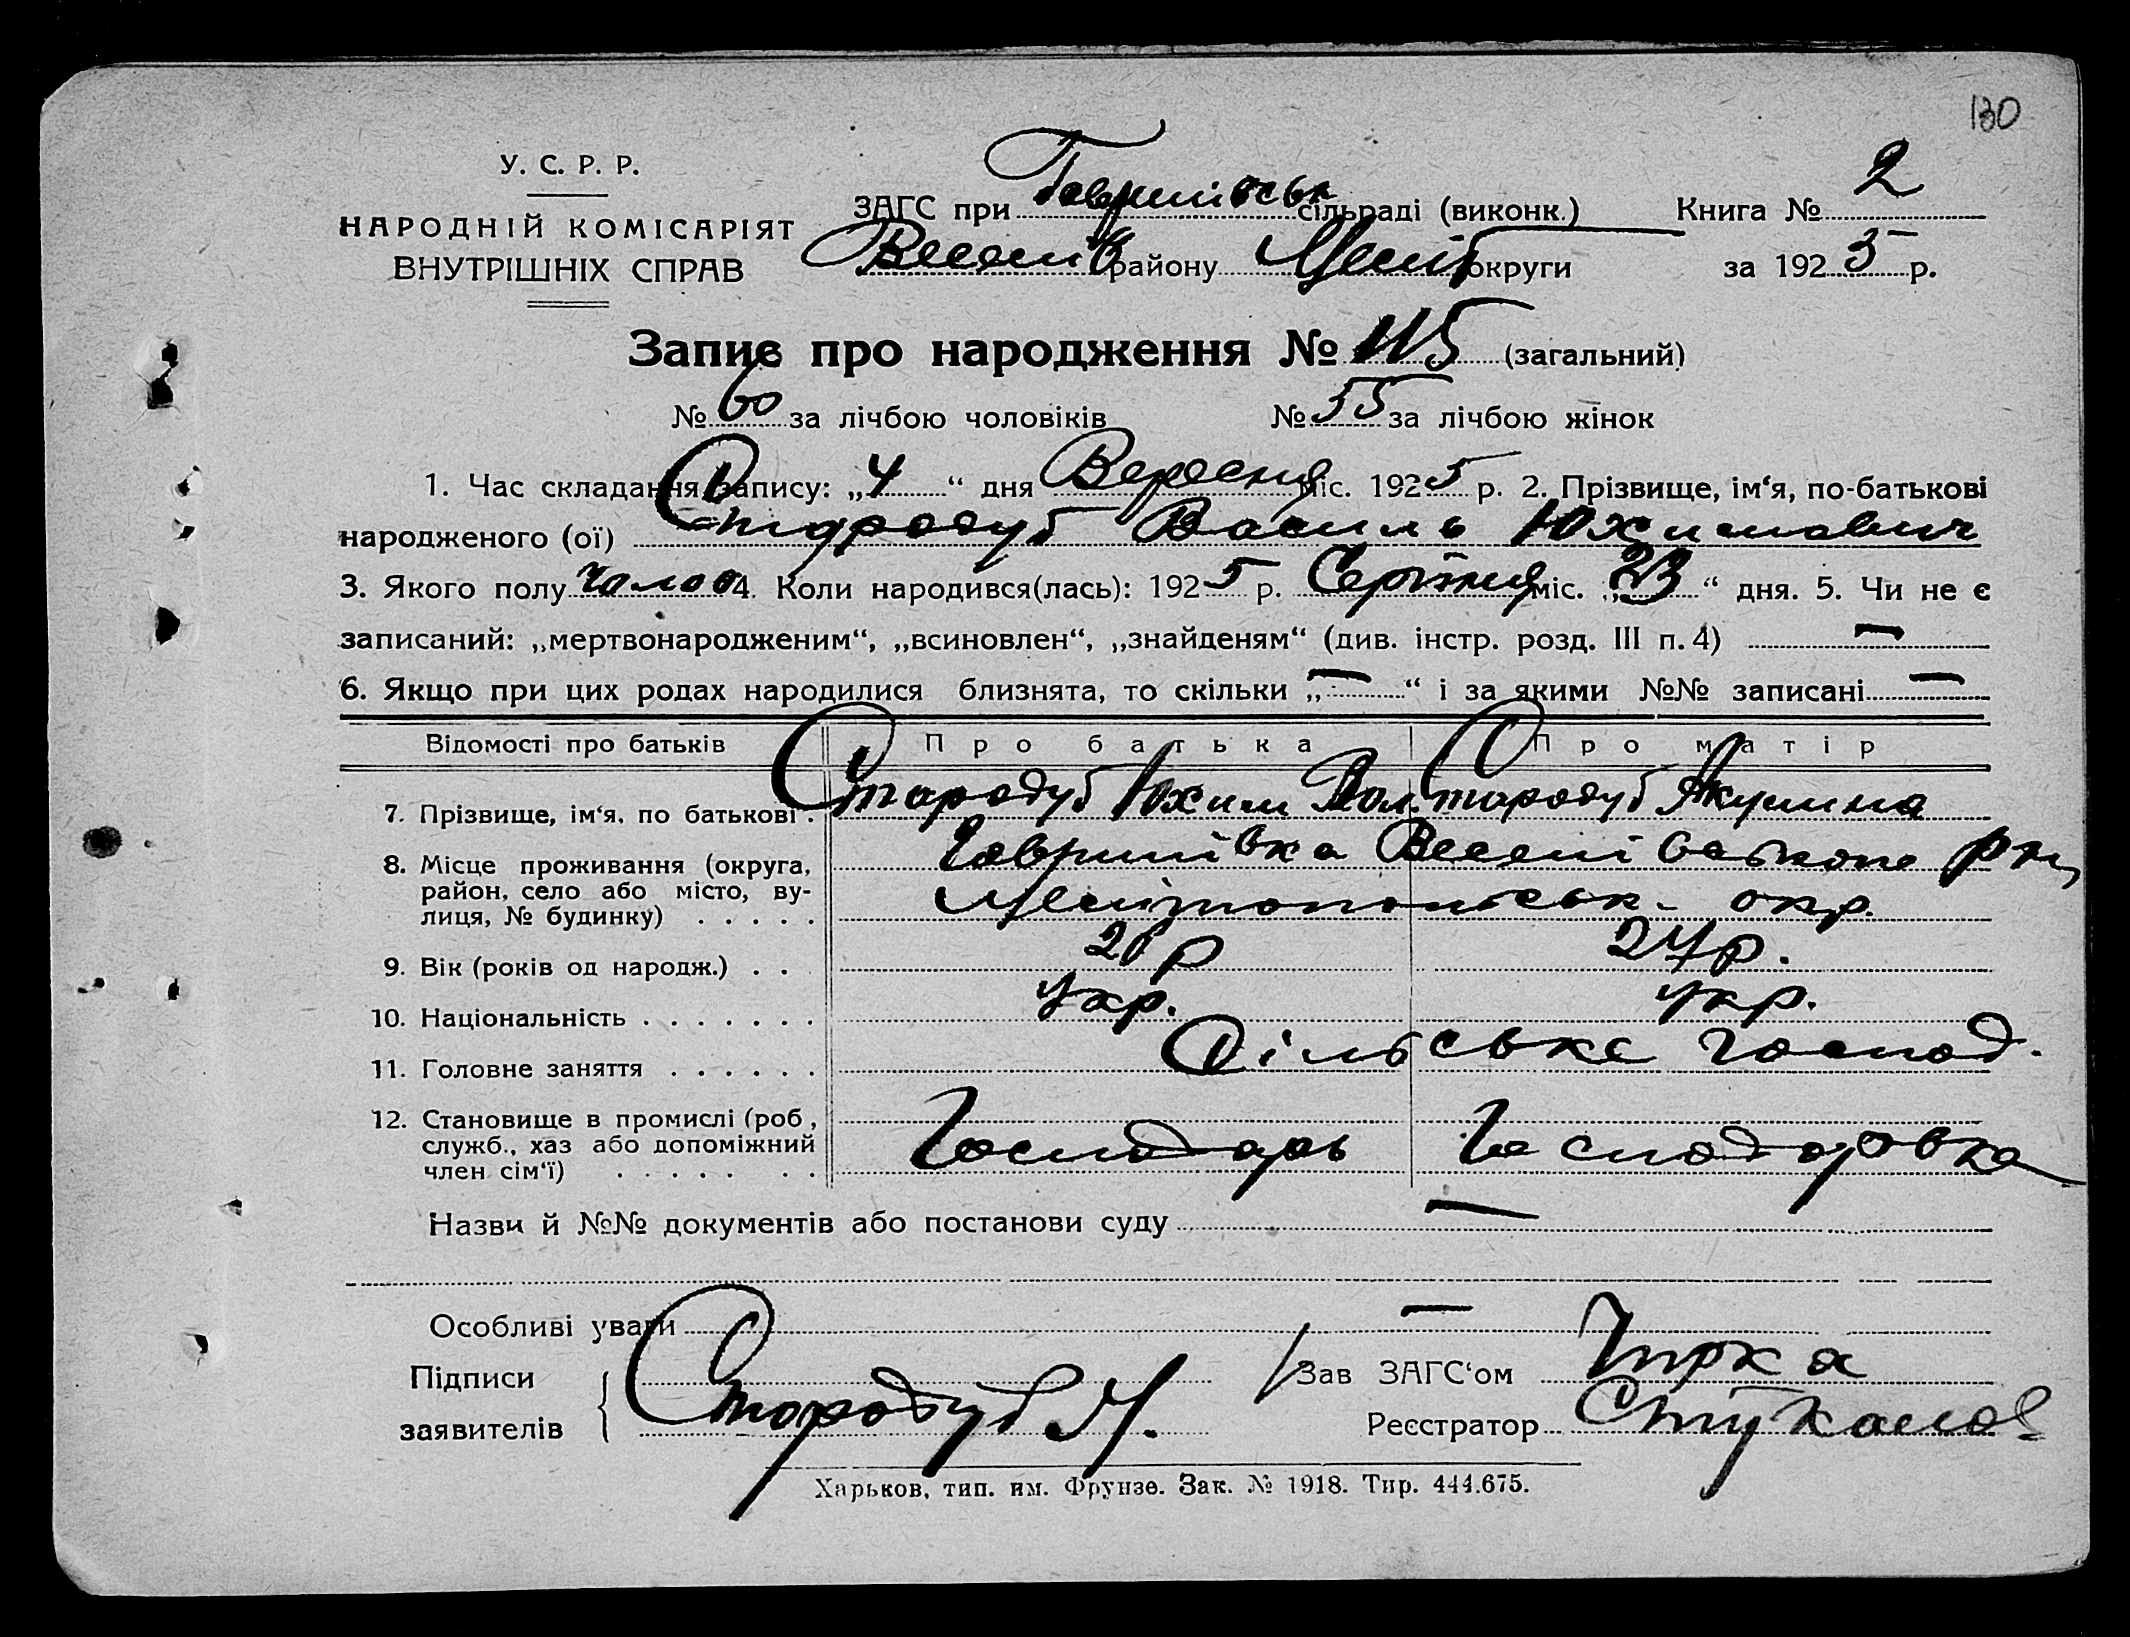 130
У. С. Р. Р.
НАРОДНІЙ КОМІСАРІЯТ
ВНУТРІШНІХ СПРАВ
ЗАГС при Гаврилівськ сільраді (виконк.) Книга № 2
Веселів району Меліт округи за 1925 р.
Запис про народження № 115 (загальний)
№ 60 за лічбою чоловіків № 55 за лічбою жінок
1. Час складання запису: „4“ дня Вересня міс. 1925 р. 2. Прізвище, ім‘я, по-батькові
народженого (ої) Стародуб Василь Юхимович
3. Якого полу Чолов 4. Коли народився(лась): 1925 р. Серпня міс. „23“ дня. 5. Чи не є
записаний: „мертвонародженим“, „всиновлен“, „знайденям“ (див. інстр. розд. III п. 4) —
6. Якщо при цих родах народилися близнята, то скільки „—“ і за якими №№ записані —
Відомості про батьків Про батька Про матір
7. Прізвище, ім‘я, по батькові . Стародуб Юхим Стародуб Акулина
8. Місце проживання (округа, Гаврилівка Веселівського рну
район, село або місто, ву-
лиця, № будинку) . . . . . Мелітопольськ- окр.
9. Вік (років од народж.) . . 26 р 24 р.
10. Національність . . . . . . . укр. укр.
11. Головне заняття . . . . . . Сільське господ.
12. Становище в промислі (роб,
служб., хаз або допоміжний Господарь Господаровка
член сім‘ї) . . . . . . .
Назви й №№ документів або постанови суду —
Особливі уваги —
Підписи Зав ЗАГС‘ом Чирка
заявителів Стародуб Реєстратор
Харьков, тип. им. Фрунзе. Зак. № 1918. Тир. 444.675.